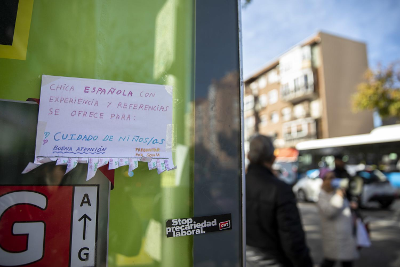 CHICA ESPAÑOLA CON
EXPERIENCIA Y REFERENCIAS
SE OFRECE PARA:
CUIDADO DE NIÑOS/AS
BUENA ATENCIÓN
G
A
G
Stop
precariedad
laboral.